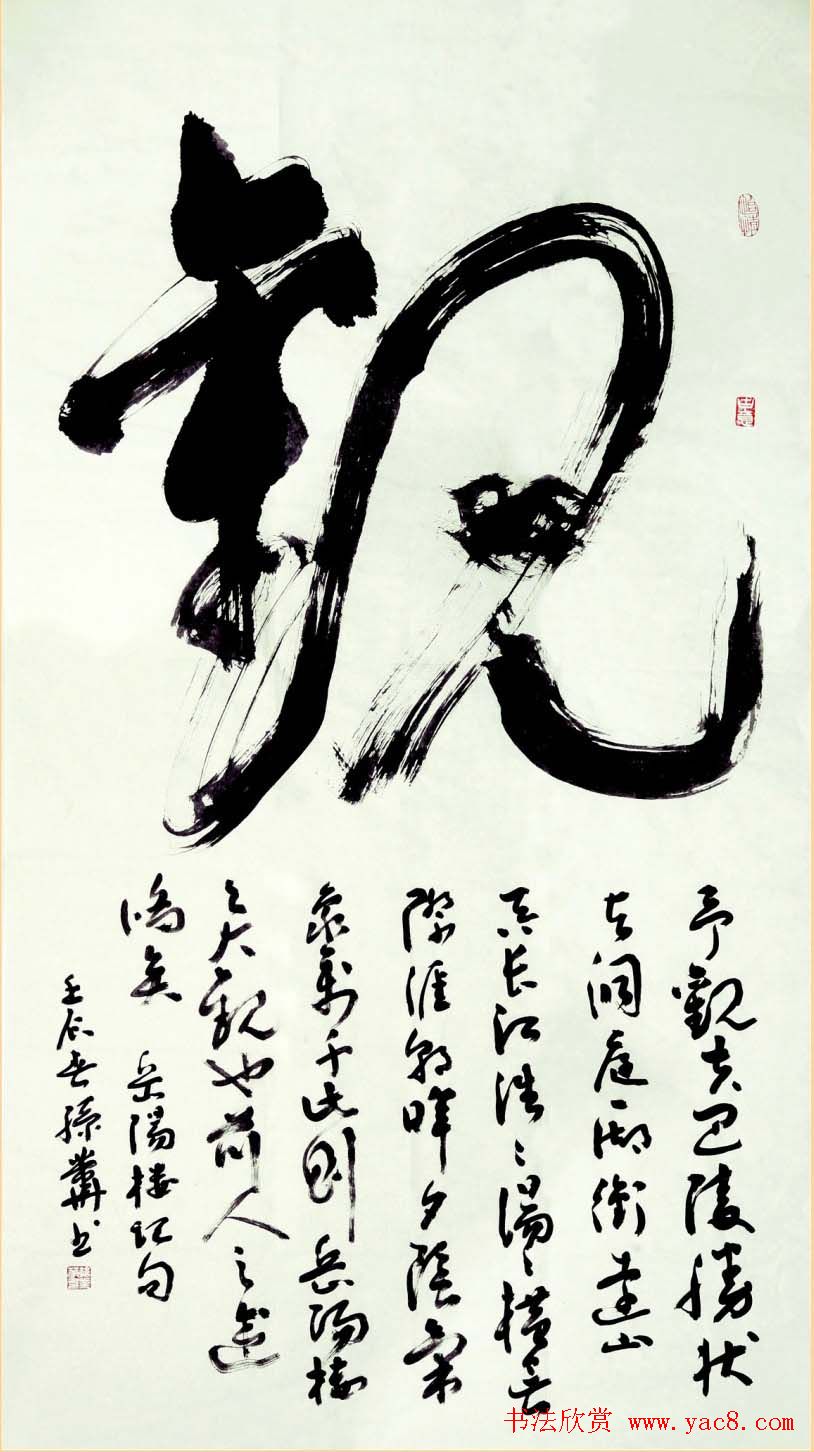 觀
予觀夫巴陵勝狀
在洞庭一湖銜遠山
吞長江浩〻湯〻橫無
際涯朝暉夕陰氣
象萬千此則岳陽樓
之大觀也前人之述
備矣 岳陽樓記句
壬辰春孫書
书法欣赏 www.yac8.com